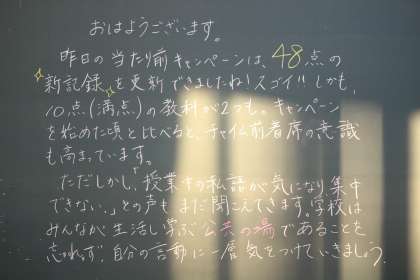 おはようございます。
昨日の当たり前キャンペーンは、48点の
新記録を更新できましたね!スゴイ!!しかも、
10点(満点)の教科が2つも。キャンペーン
を始めた頃と比べると、チャイム前着席の意識
も高まっています。
ただしかし、「授業中の私語が気になり集中
できない。」との声もまだ聞こえてきます。学校は
みんなが生活し学ぶ公共の場であることを
忘れず、自分の言動に一層気をつけていきましょう。